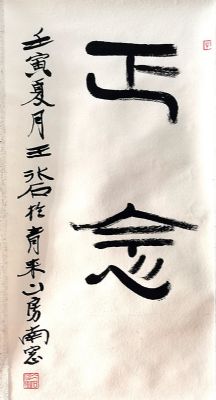 正念
壬寅夏月王石於青来山房南窗